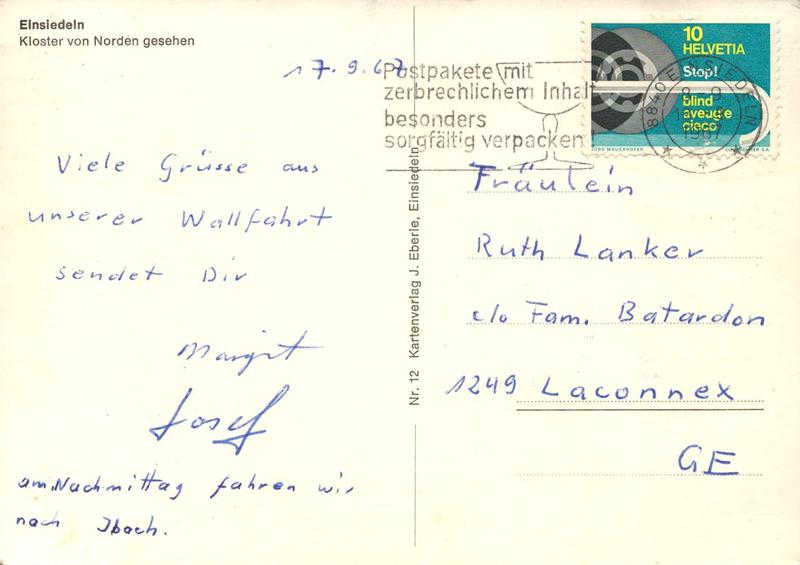 Einsiedeln
Kloster von Norden gesehen
17.9.67
Postpakete mit
zerbrechlichem Inhalt
besonders
sorgfältig verpacken
10
HELVETIA
Stop!
blind
aveugle
cieco
8840 EINSIEDELN
1967
Viele Grüsse aus
unserer Wallfahrt
sendet Dir
Margrit
Josef
am Nachmittag fahren wir
nach Ibach.
Nr. 12 Kartenverlag J. Eberle, Einsiedeln
Fräulein
Ruth Lanker
c/o Fam. Batardon
1249 Laconnex
GE